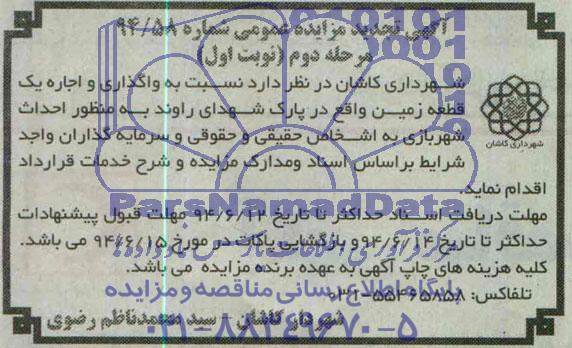 آگهی تجدید مزایده عمومی شماره ۹۴/۵۸
مرحله دوم (نوبت اول)
شهرداری کاشان در نظر دارد نسبت به واگذاری و اجاره یک
قطعه زمین واقع در پارک شهدای راوند به منظور احداث
شهربازی به اشخاص حقیقی و حقوقی و سرمایه گذاران واجد
شرایط براساس اسناد ومدارک مزایده و شرح خدمات قرارداد
اقدام نماید.
شهرداری کاشان
ParsNamadData
مهلت دریافت اسناد حداکثر تا تاریخ ۹۴/۶/۱۲ مهلت قبول پیشنهادات
حداکثر تا تاریخ ۹۴/۶/۱۴ و بازگشایی پاکات در مورخ ۹۴/۶/۱۵ می باشد.
کلیه هزینه های چاپ آگهی به عهده برنده مزایده می باشد.
تلفاکس: ۵۵۴۶۵۸۵۸-۰۳۱
پایگاه اطلاع رسانی مناقصه و مزایده
شهردار کاشان – سید محمدناظم رضوی
۰۲۱-۸۸۳۴۹۶۷۰-۵